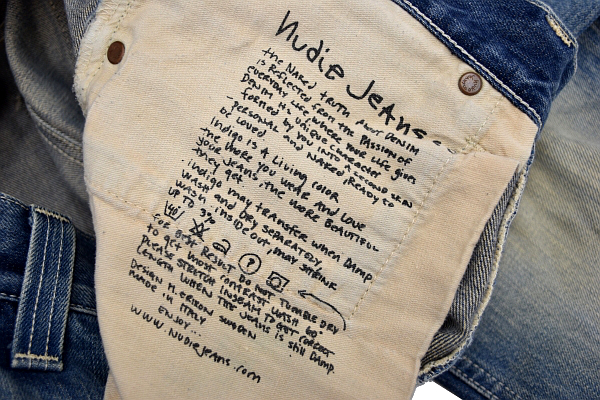 Nudie Jeans
the NAKED truth About DENIM
is REFLECTED FROM THE PASSION OF
EVERYDAY LIFE, WHERE YOUR LIFE gives
DENIM its UNIQUE CHARACTER
FORMED by YOU INTO A SECOND SKIN
PERSONAL AND NAKED READY TO
BE LOVED
Indigo IS A LIVING COLOR
the MORE YOU WEAR AND LOVE
YOUR JEANS, the MORE BEAUTIFUL
they get
indigo MAY TRANSFER WHEN DAMP
WASH AND DRY SEPARATELY
WASH INSIDE OUT, MAY SHRINK
UP TO 3%
FOR BEST RESULT DO NOT TUMBLE DRY
to get MORE CONTRAST WASH 60°
PLEASE STRETCH INSEAM TO GET CORRECT
LENGTH WHEN THE JEANS is still DAMP.
DESIGN M. ERIXON SWEDEN
MADE IN ITALY
ENJOY..
WWW.NudieJeans.com